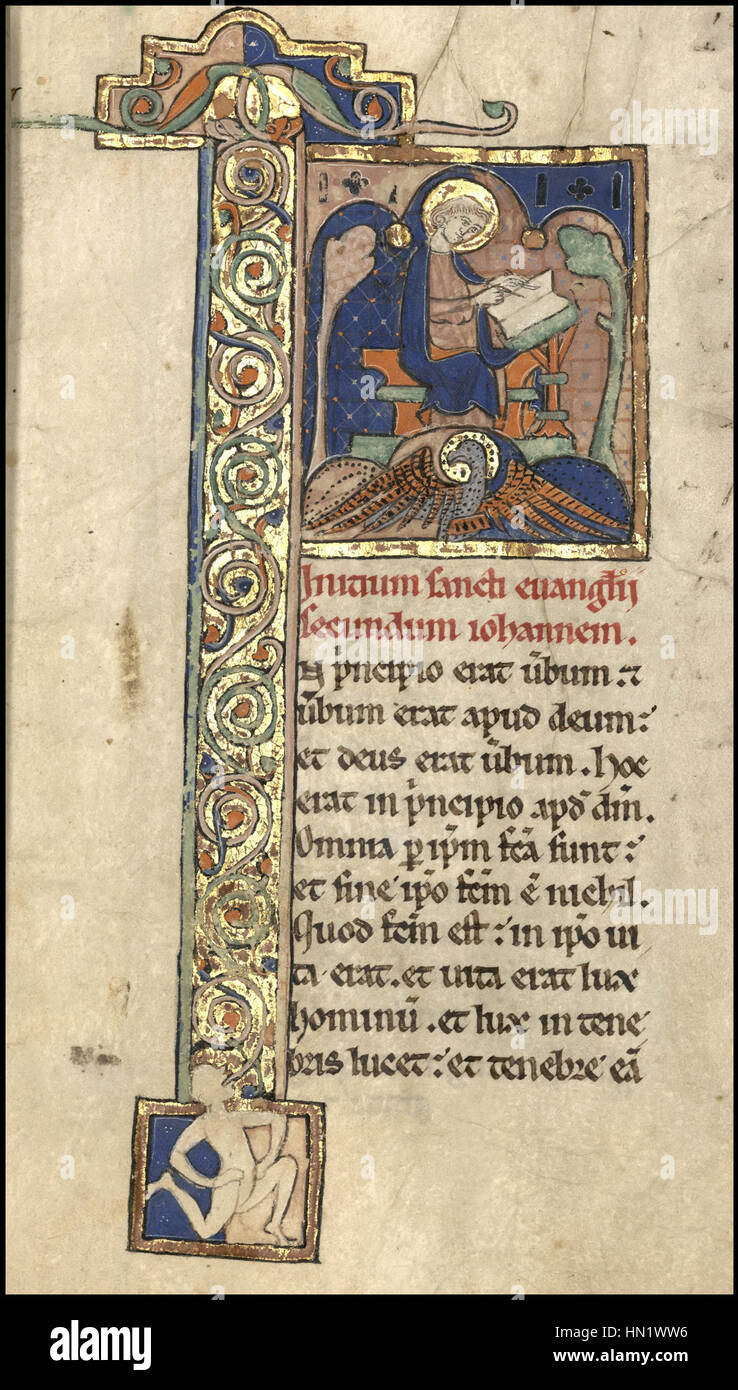 Initium sancti evanglij
secundum iohannem.
N p̍ncipio erat ūbum ⁊
ūbum erat apud deum:
et deus erat ūbum. hoc
erat in p̍ncipio apd̕ dm̄.
Omnia p̱ ip̄m fc̄a sunt:
et sine ip̄o fc̄m ē nichil.
Quod fc̄m est: in ip̄o ui
ta erat. et uita erat lux
hominū. et lux in tene
bris lucet: et tenebre eā
alamy
a
alamy stock photo
HN1WW6
www.alamy.com